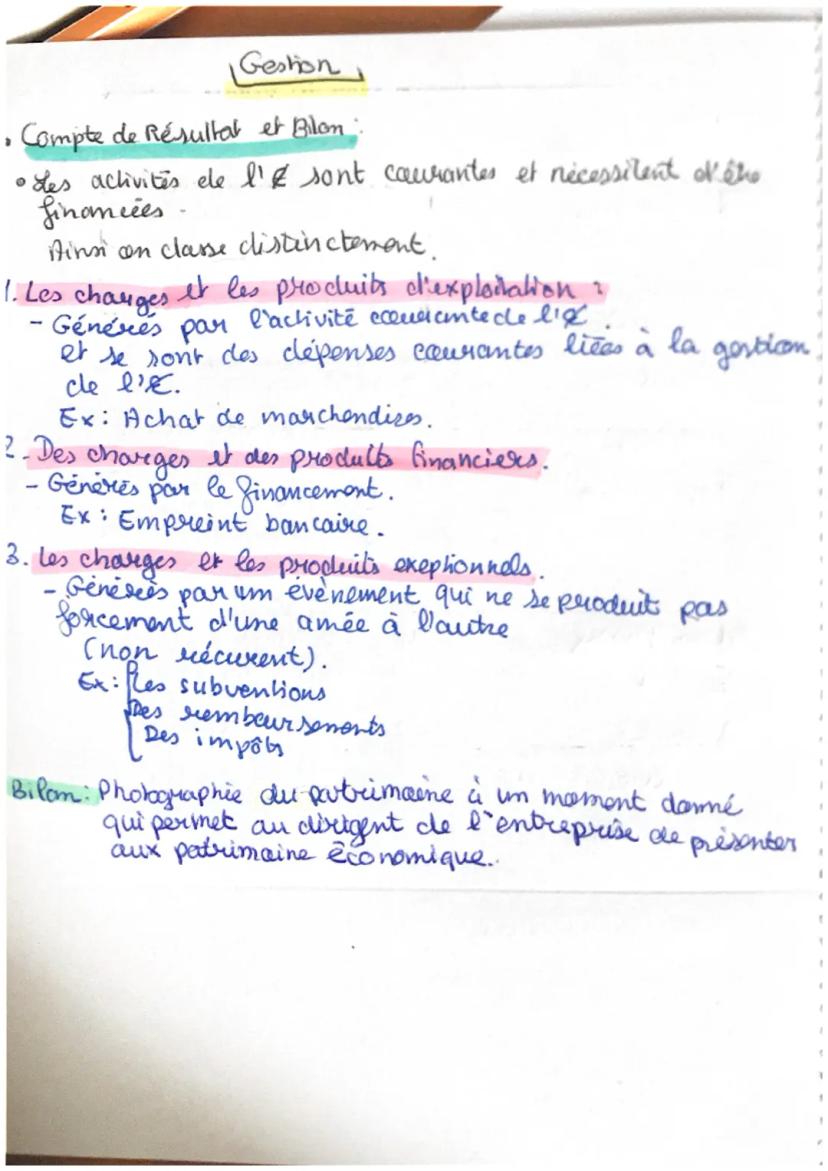 Gestion
• Compte de Résultat et Bilan :
• Les activités de l'€ sont courantes et nécessitent d'être
financées.
Ainsi on classe distinctement.
1. Les charges et les produits d'exploitation :
- Générés par l'activité courante de l'€.
et se sont des dépenses courantes liées à la gestion
de l'€.
Ex : Achat de marchendises.
2. Des charges et des produits financiers.
- Générés par le financement.
Ex : Empreint bancaire.
3. Les charges et les produits exeptionnels.
- Générés par um évènement qui ne se produit pas
forcement d'une année à l'autre
(non récurent).
Ex : Les subventions
Des remboursements
Des impôts
Bilan : Photographie du patrimoine à un moment donné
qui permet au dirigent de l'entreprise de présenter
aux patrimoine économique.